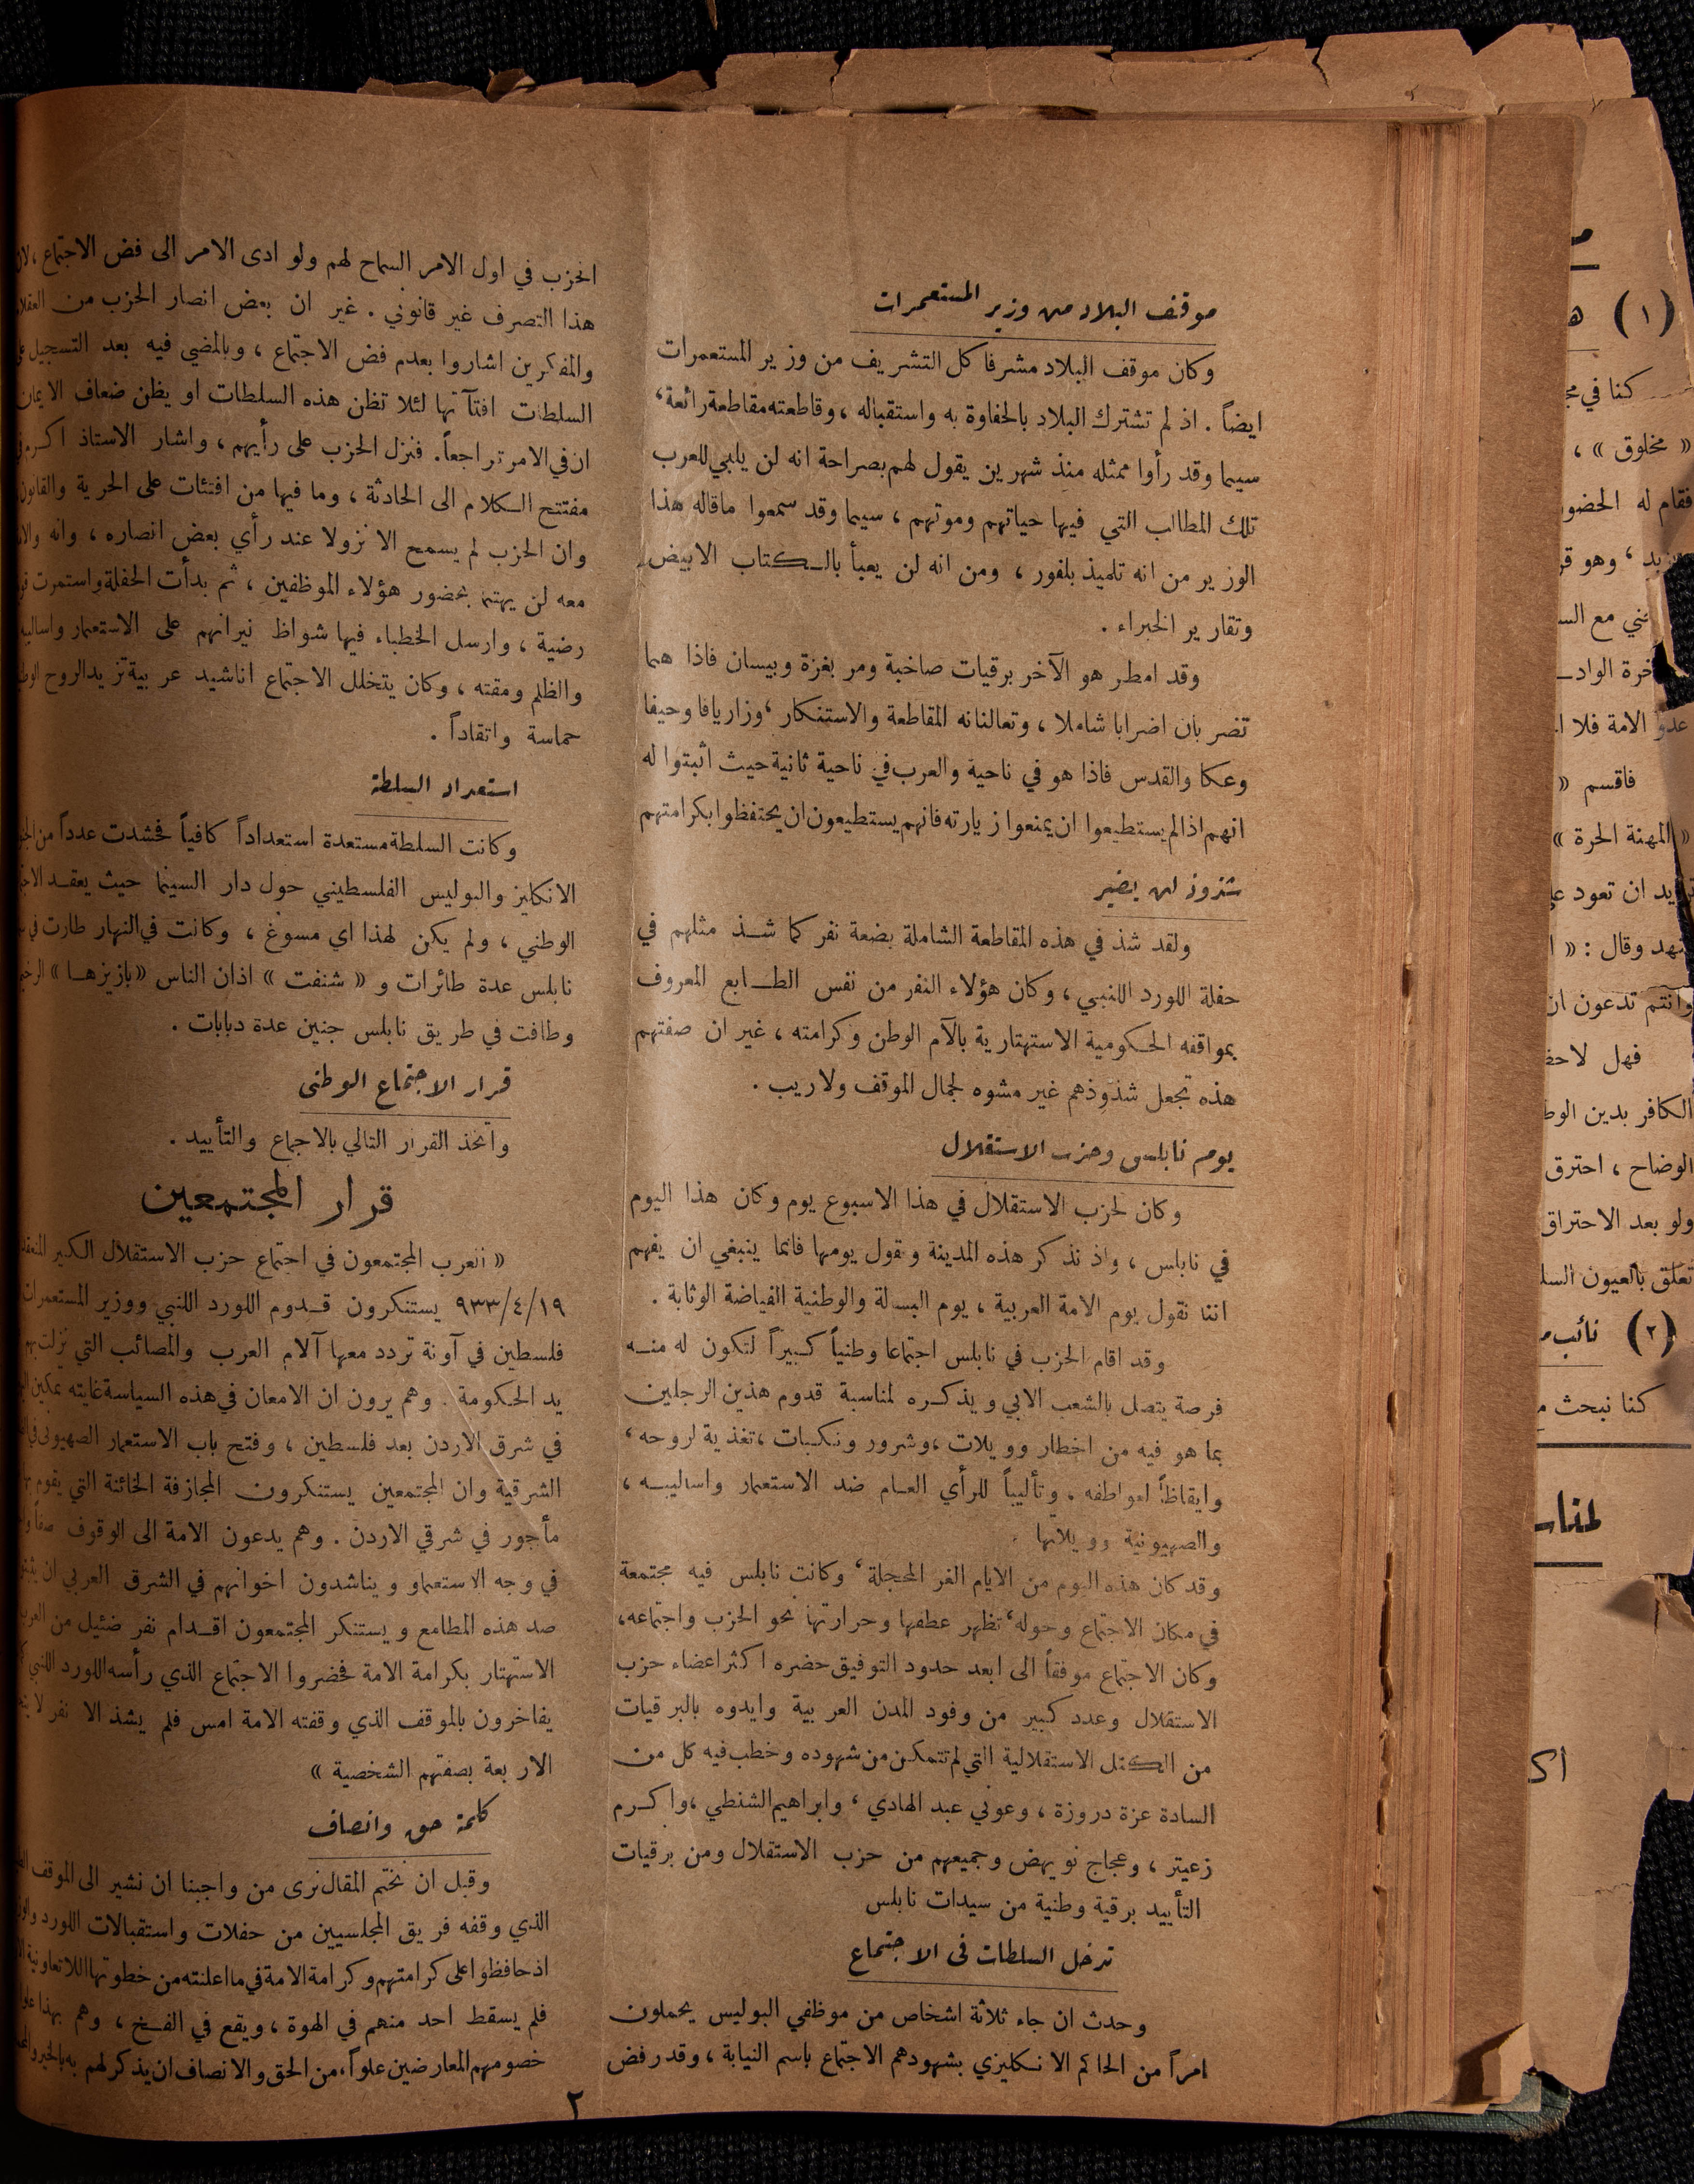 موقف البلاد من وزير المستعمرات
وكان موقف البلاد مشرفا كل التشريف من وزير المستعمرات
ايضاً . اذ لم تشترك البلاد بالحفاوة به واستقباله ، وقاطعته مقاطعة رائعة ،
سيما وقد رأوا ممثله منذ شهرين يقول لهم بصراحة انه لن يلبي للعرب
تلك المطالب التي فيها حياتهم وموتهم ، سيما وقد سمعوا ماقاله هذا
الوزير من انه تلميذ بلفور ، ومن انه لن يعبأ بالكتاب الابيض
وتقارير الخبراء .
وقد امطر هو الآخر برقيات صاخبة ومر بغزة وبيسان فاذا هما
تضربان اضرابا شاملا ، وتعالنانه المقاطعة والاستنكار ، وزار يافا وحيفا
وعكا والقدس فاذا هو في ناحية والعرب في ناحية ثانية حيث اثبتوا له
انهم اذا لم يستطيعوا ان يمنعوا زيارته فانهم يستطيعون ان يحتفظوا بكرامتهم
شذوذ لن يضير
ولقد شذ في هذه المقاطعة الشاملة بضعة نفر كما شذ مثلهم في
حفلة اللورد اللنبي ، وكان هؤلاء النفر من نفس الطابع المعروف
بمواقفه الحكومية الاستهتارية بالآم الوطن وكرامته ، غير ان صفتهم
هذه تجعل شذوذهم غير مشوه لجمال الموقف ولاريب .
يوم نابلس وحزب الاستقلال
وكان لحزب الاستقلال في هذا الاسبوع يوم وكان هذا اليوم
في نابلس ، واذ نذكر هذه المدينة ونقول يومها فانما ينبغي ان يفهم
اننا نقول يوم الامة العربية ، يوم البسالة والوطنية الفياضة الوثابة .
وقد اقام الحزب في نابلس اجتماعا وطنياً كبيراً لتكون له منه
فرصة يتصل بالشعب الابي ويذكره لمناسبة قدوم هذين الرجلين
بما هو فيه من اخطار وويلات ، وشرور ونكبات ، تغذية لروحه ،
وايقاظاً لعواطفه . وتأليباً للرأي العام ضد الاستعمار واساليبه ،
والصهيونية وويلاتها .
وقد كان هذه اليوم من الايام الغر المحجلة ، وكانت نابلس فيه مجتمعة
في مكان الاجتماع وحوله ، تظهر عطفها وحرارتها نحو الحزب واجتماعه ،
وكان الاجتماع موفقاً الى ابعد حدود التوفيق حضره اكثر اعضاء حزب
الاستقلال وعدد كبير من وفود المدن العربية وايدوه بالبرقيات
من الكتل الاستقلالية التي لم تتمكن من شهوده وخطب فيه كل من
السادة عزة دروزة ، وعوني عبد الهادي ، وابراهيم الشنطي ، واكرم
زعيتر ، وعجاج نويهض وجميعهم من حزب الاستقلال ومن برقيات
التأييد برقية وطنية من سيدات نابلس
تدخل السلطات في الاجتماع
وحدث ان جاء ثلاثة اشخاص من موظفي البوليس يحملون
امراً من الحاكم الانكليزي بشهودهم الاجتماع باسم النيابة ، وقد رفض
الحزب في اول الامر السماح لهم ولو ادى الامر الى فض الاجتماع ، لان
هذا التصرف غير قانوني . غير ان بعض انصار الحزب من العقلاء
والمفكرين اشاروا بعدم فض الاجتماع ، وبالمضي فيه بعد التسجيل
السلطات افتآتها لئلا تظن هذه السلطات او يظن ضعاف الايمان
ان في الامر تراجعاً . فنزل الحزب على رأيهم ، واشار الاستاذ اكرم
مفتتح الكلام الى الحادثة ، وما فيها من افتئات على الحرية والقانون
وان الحزب لم يسمح الا نزولا عند رأي بعض انصاره ، وانه
معه لن يهتما بحضور هؤلاء الموظفين ، ثم بدأت الحفلة واستمرت
رضية ، وارسل الخطباء فيها شواظ نيرانهم على الاستعمار واساليبه
والظلم ومقته ، وكان يتخلل الاجتماع اناشيد عربية تزيد الروح
حماسة واتقاداً .
استعداد السلطة
وكانت السلطة مستعدة استعداداً كافياً فحشدت عدداً من
الانكليز والبوليس الفلسطيني حول دار السينما حيث يعقد
الوطني ، ولم يكن لهذا اي مسوغ ، وكانت في النهار طارت في
نابلس عدة طائرات و « شنفت » اذان الناس « بازيزها »
وطافت في طريق نابلس جنين عدة دبابات .
قرار الاجتماع الوطني
واتخذ القرار التالي بالاجماع والتأييد .
قرار المجتمعين
« العرب المجتمعون في اجتماع حزب الاستقلال الكبير المنعقد
٩٣٣/٤/١٩ يستنكرون قدوم اللورد اللنبي ووزير المستعمرات
فلسطين في آونة تردد معها آلام العرب والمصائب التي نزلت بهم
يد الحكومة . وهم يرون ان الامعان في هذه السياسة غايته تمكين
في شرق الاردن بعد فلسطين ، وفتح باب الاستعمار الصهيوني
الشرقية وان المجتمعين يستنكرون المجازفة الخائنة التي يقوم بها
مأجور في شرقي الاردن . وهم يدعون الامة الى الوقوف صفاً
في وجه الاستعماو ويناشدون اخوانهم في الشرق العربي ان
ضد هذه المطامع ويستنكر المجتمعون اقدام نفر ضئيل من العرب
الاستهتار بكرامة الامة فحضروا الاجتماع الذي رأسه اللورد اللنبي
يفاخرون بالموقف الذي وقفته الامة امس فلم يشذ الا نفر لا
الاربعة بصفتهم الشخصية »
كلمة حق وانصاف
وقبل ان نختم المقال نرى من واجبنا ان نشير الى الموقف
الذي وقفه فريق المجلسيين من حفلات واستقبالات اللورد
اذ حافظوا على كرامتهم وكرامة الامة في ما اعلنته من خطوتها اللاتعاونية
فلم يسقط احد منهم في الهوة ، ويقع في الفخ ، وهم بهذا
خصومهم المعارضين علواً ، من الحق والانصاف ان يذكر لهم به بالخير
٢
(١)
كنا في
« مخلوق » ،
فقام له الحضور
وهو
مع
عدو الامة فلا
فاقسم «
« المهنة الحرة »
ان تعود
وقال : «
وانتم تدعون ان
فهل
الكافر بدين
الوضاح ، احترق
ولو بعد الاحتراق
تعلق بالعيون
(٢) نائب
كنا نبحث